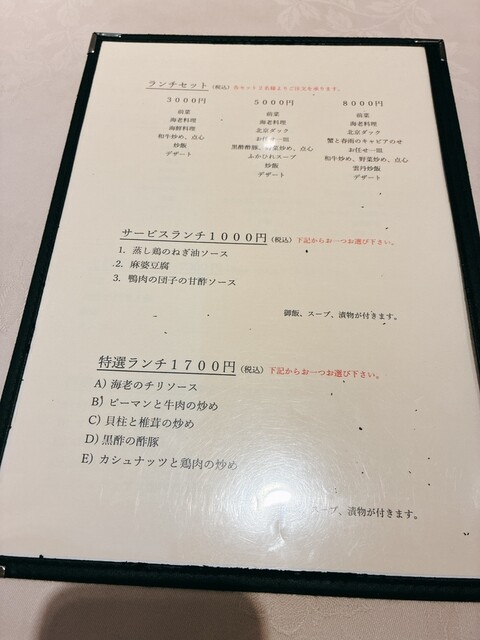 ランチセット (税込) 各セット2名様よりご注文を承ります。
3000円
前菜
海老料理
海鮮料理
和牛炒め、点心
炒飯
デザート
5000円
前菜
海老料理
北京ダック
お任せ一頭
黒酢酢豚、野菜炒め、点心
ふかひれスープ
炒飯
デザート
8000円
前菜
海老料理
北京ダック
蟹と春雨のキャビアのせ
お任せ一頭
和牛炒め、野菜炒め、点心
雲丹炒飯
デザート
サービスランチ1000円 (税込) 下記からお一つお選び下さい。
1. 蒸し鶏のねぎ油ソース
2. 麻婆豆腐
3. 鴨肉の団子の甘酢ソース
御飯、スープ、漬物が付きます。
特選ランチ1700円 (税込) 下記からお一つお選び下さい。
A) 海老のチリソース
B) ピーマンと牛肉の炒め
C) 貝柱と椎茸の炒め
D) 黒酢の酢豚
E) カシュナッツと鶏肉の炒め
スープ、漬物が付きます。